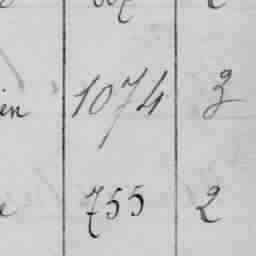 in 1074 3
e 755 2